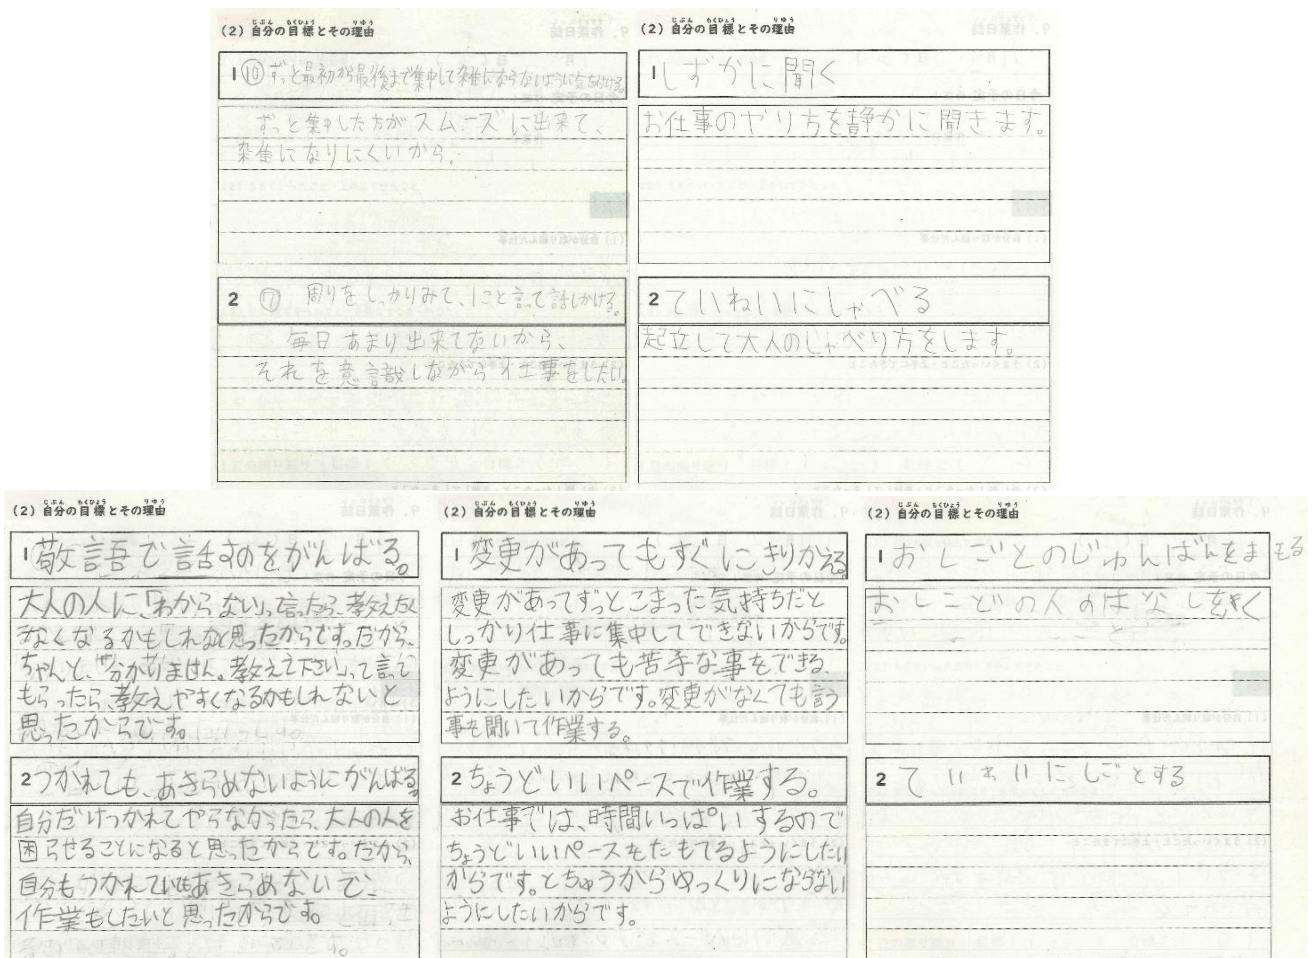 (2) 自分の目標とその理由
じぶん もくひょう りゆう
1 ⑩ ずっと最初から最後まで集中して雑にならないように気をつける。
ずっと集中した方がスムーズに出来て、
雑になりにくいから。
2 ⑦ 周りをしっかりみて、1こと言って話しかける。
毎日あまり出来てないから、
それを意識しながら仕事をしたい。
(2) 自分の目標とその理由
じぶん もくひょう りゆう
1 しずかに聞く
お仕事のやり方を静かに聞きます。
2 ていねいにしゃべる
起立して大人のしゃべり方をします。
(2) 自分の目標とその理由
じぶん もくひょう りゆう
1 敬語で話すのをがんばる。
大人の人に、「わからない」って言ったら、教えたく
なくなるかもしれないと思ったからです。だから、
ちゃんと、「分かりません。教えて下さい」って言って
もらったら、教えやすくなるかもしれないと
思ったからです。
2 つかれても、あきらめないようにがんばる。
自分だけつかれてやらなかったら、大人の人を
困らせることになると思ったからです。だから、
自分もつかれていてもあきらめないで、
作業もしたいと思ったからです。
(2) 自分の目標とその理由
じぶん もくひょう りゆう
1 変更があってもすぐにきりかえる
変更があってずっとこまった気持ちだと
しっかり仕事に集中してできないからです。
変更があっても苦手な事をできる
ようにしたいからです。変更がなくても言う
事を聞いて作業する。
2 ちょうどいいペースで作業する。
お仕事では、時間いっぱいするので
ちょうどいいペースをたもてるようにしたい
からです。とちゅうからゆっくりにならない
ようにしたいからです。
(2) 自分の目標とその理由
じぶん もくひょう りゆう
1 おしごとのじゅんばんをまもる
おしごとの人のはなしをきく
2 ていねいにしごとする